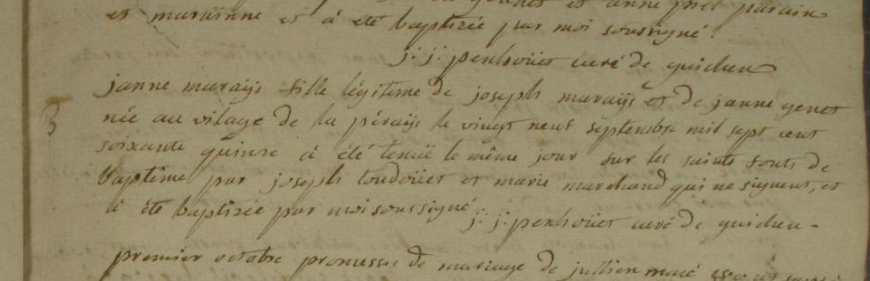 et anne parain
et maraine et a été baptizée par moi soussigné.
j: j: penhoüet curé de guichen
B
janne maraÿs fille légitime de joseph maraÿs et de janne genet
née au vilage de la péraÿs le vingt neuf septembre mil sept cent
soixante quinze a été tenüe le même jour sur les saints fonts de
baptême par joseph et marie marchand qui ne signent, et
a été baptizée par moi soussigné j: j: penhoüet curé de guichen -
premier octobre promesses de mariage de jullien macé